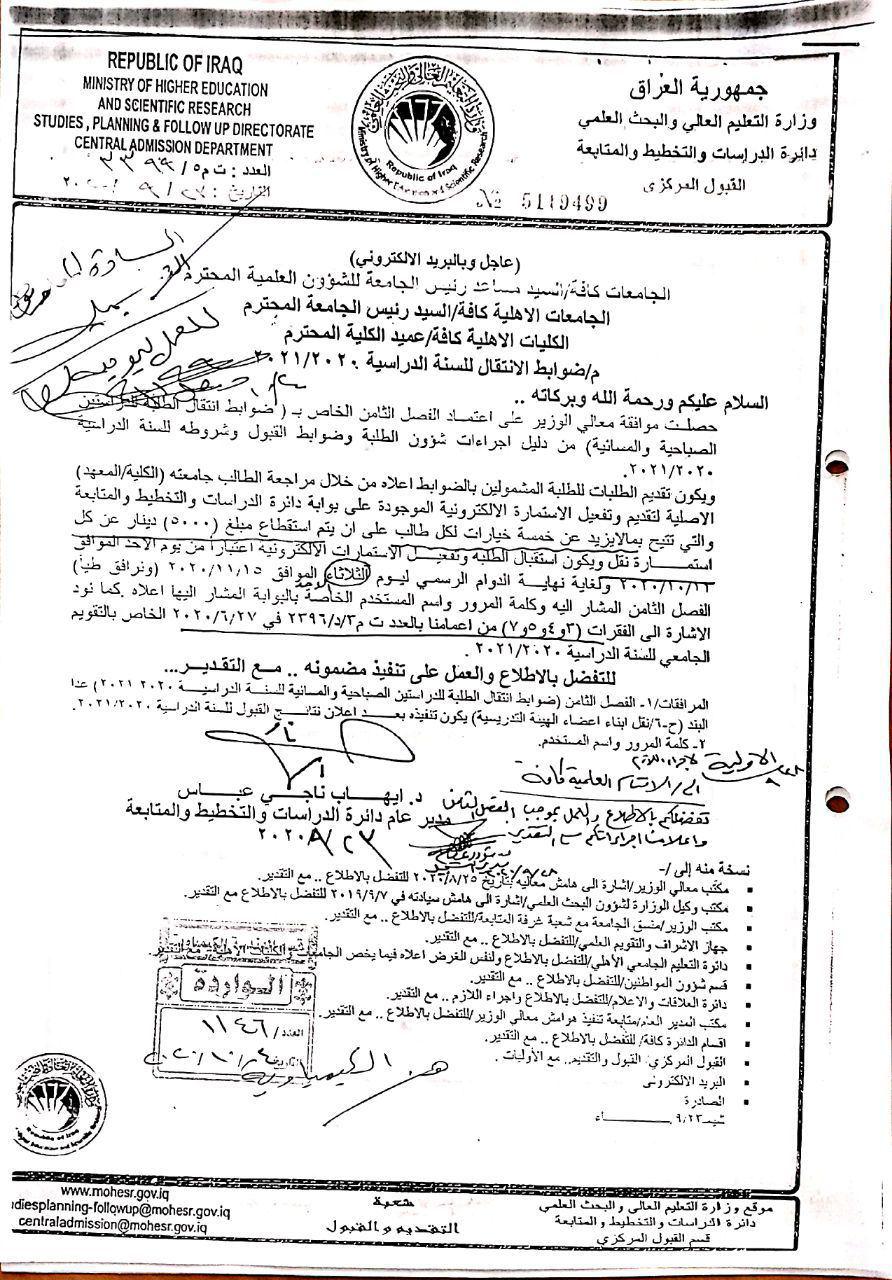 REPUBLIC OF IRAQ
MINISTRY OF HIGHER EDUCATION
AND SCIENTIFIC RESEARCH
STUDIES , PLANNING & FOLLOW UP DIRECTORATE
CENTRAL ADMISSION DEPARTMENT
العدد : ت م٥/
التاريخ :
Republic of Iraq
جمهورية العراق
وزارة التعليم العالي والبحث العلمي
دائرة الدراسات والتخطيط والمتابعة
القبول المركزي
№ 5119499
(عاجل وبالبريد الالكتروني)
الجامعات كافة/السيد مساعد رئيس الجامعة للشؤون العلمية المحترم
الجامعات الاهلية كافة/السيد رئيس الجامعة المحترم
الكليات الاهلية كافة/عميد الكلية المحترم
م/ضوابط الانتقال للسنة الدراسية ٢٠٢١/٢٠٢٠
السلام عليكم ورحمة الله وبركاته ..
حصلت موافقة معالي الوزير على اعتماد الفصل الثامن الخاص بـ (ضوابط انتقال الطلبة للدراستين
الصباحية والمسائية) من دليل اجراءات شؤون الطلبة وضوابط القبول وشروطه للسنة الدراسية
٢٠٢١/٢٠٢٠.
ويكون تقديم الطلبات للطلبة المشمولين بالضوابط اعلاه من خلال مراجعة الطالب جامعته (الكلية/المعهد)
الاصلية لتقديم وتفعيل الاستمارة الالكترونية الموجودة على بوابة دائرة الدراسات والتخطيط والمتابعة
والتي تتيح بمالايزيد عن خمسة خيارات لكل طالب على ان يتم استقطاع مبلغ (٥٠٠٠) دينار عن كل
استمارة نقل ويكون استقبال الطلبة وتفعيل الاستمارات الالكترونية اعتباراً من يوم الاحد الموافق
ولغاية نهاية الدوام الرسمي ليوم الثلاثاء الموافق ٢٠٢٠/١١/١٥ (ونرافق طياً)
الاحد
الفصل الثامن المشار اليه وكلمة المرور واسم المستخدم الخاصة بالبوابة المشار اليها اعلاه .كما نود
الاشارة الى الفقرات (٣و٤و٥و٧) من اعمامنا بالعدد ت م٣/د/٢٣٩٦ في ٢٠٢٠/٦/٢٧ الخاص بالتقويم
الجامعي للسنة الدراسية ٢٠٢١/٢٠٢٠ .
للتفضل بالاطلاع والعمل على تنفيذ مضمونه .. مع التقدير...
المرافقات/١- الفصل الثامن (ضوابط انتقال الطلبة للدراستين الصباحية والمسائية للسنة الدراسية ٢٠٢٠ ٢٠٢١) عدا
البند (ح-٦/نقل ابناء اعضاء الهيئة التدريسية) يكون تنفيذه بعد اعلان نتائج القبول للسنة الدراسية ٢٠٢١/٢٠٢٠.
٢- كلمة المرور واسم المستخدم.
الى/ الاقسام العلمية كافة
تفضلكم بالاطلاع والعمل بموجب الفصل الثامن
واعلامنا اجراءاتكم مع التقدير
د. ايهاب ناجي عباس
مدير عام دائرة الدراسات والتخطيط والمتابعة
٢٠٢٠/٩/٢٣
نسخة منه إلى /-
مكتب معالي الوزير/اشارة الى هامش معاليه بتاريخ ٢٠٢٠/٨/٢٥ للتفضل بالاطلاع .. مع التقدير.
مكتب وكيل الوزارة لشؤون البحث العلمي/اشارة الى هامش سيادته في ٢٠١٩/٩/٧ للتفضل بالاطلاع مع التقدير.
مكتب الوزير/منسق الجامعة مع شعبة غرفة المتابعة/للتفضل بالاطلاع .. مع التقدير.
جهاز الاشراف والتقويم العلمي/للتفضل بالاطلاع .. مع التقدير.
دائرة التعليم الجامعي الأهلي/للتفضل بالاطلاع ولنفس الغرض اعلاه فيما يخص الجامعات
قسم شؤون المواطنين/للتفضل بالاطلاع .. مع التقدير.
دائرة العلاقات والاعلام/للتفضل بالاطلاع واجراء اللازم .. مع التقدير.
مكتب المدير العام/متابعة تنفيذ هوامش معالي الوزير/للتفضل بالاطلاع .. مع التقدير.
اقسام الدائرة كافة/ للتفضل بالاطلاع .. مع التقدير.
القبول المركزي/ القبول والتقديم.. مع الأوليات.
البريد الالكتروني
الصادرة
٩/٢٣
الواردة
العدد/ ١١٤٦
التاريخ
Republic of Iraq
www.mohesr.gov.iq
diesplanning-followup@mohesr.gov.iq
centraladmission@mohesr.gov.iq
شعبة
التقديم والقبول
موقع وزارة التعليم العالي والبحث العلمي
دائرة الدراسات والتخطيط والمتابعة
قسم القبول المركزي